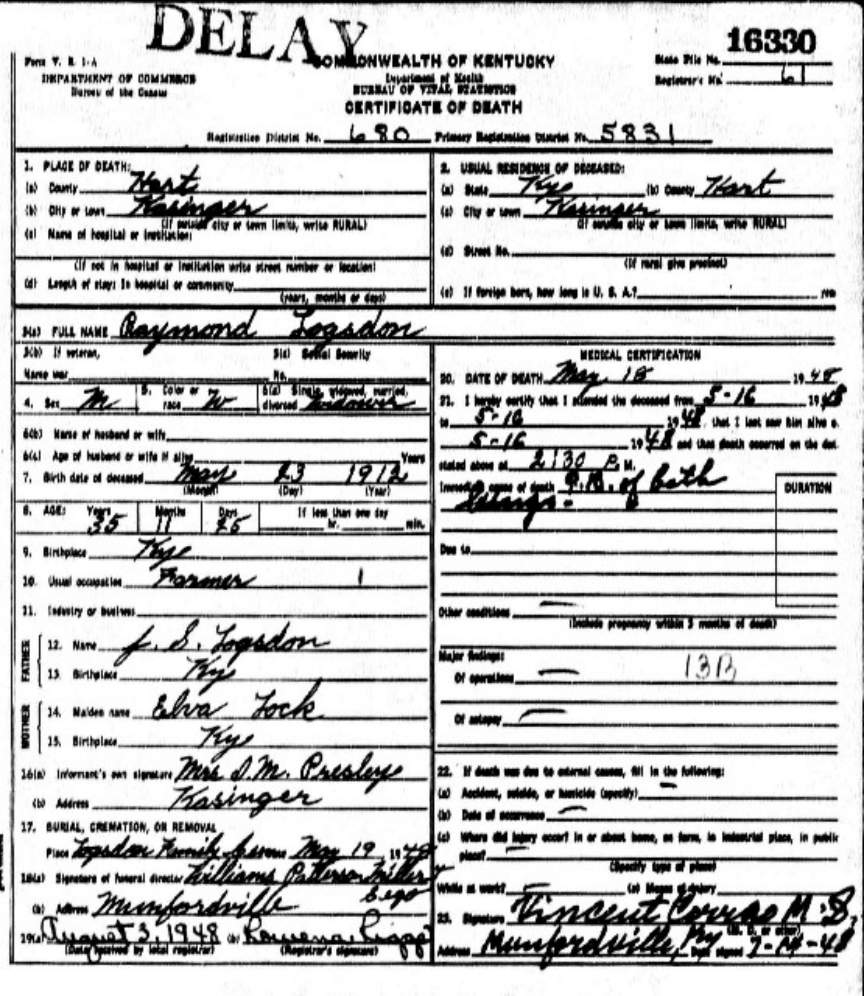 DELAY
16330
Form V. S. 1-A
COMMONWEALTH OF KENTUCKY
State File No.
DEPARTMENT OF COMMERCE
Department of Health
Registrar's No. 61
Bureau of the Census
BUREAU OF VITAL STATISTICS
CERTIFICATE OF DEATH
Registration District No. 680 Primary Registration District No. 5831
1. PLACE OF DEATH:
(a) County Hart
(b) City or town Kasinger
(If outside city or town limits, write RURAL)
(c) Name of hospital or institution:
(If not in hospital or institution write street number or location)
(d) Length of stay: In hospital or community
(years, months or days)
2. USUAL RESIDENCE OF DECEASED:
(a) State Ky (b) County Hart
(c) City or town Kasinger
(If outside city or town limits, write RURAL)
(d) Street No.
(If rural give precinct)
(e) If foreign born, how long in U. S. A.?
3(a) FULL NAME Raymond Logsdon
3(b) If veteran, 3(c) Social Security
Name war No.
4. Sex M 5. Color or race W 6(a) Single, widowed, married, divorced Widower
6(b) Name of husband or wife
6(c) Age of husband or wife if alive Years
7. Birth date of deceased May 23 1912
(Month) (Day) (Year)
8. AGE: Years Months Days If less than one day
35 11 25 hr. min.
9. Birthplace Ky
10. Usual occupation Farmer
11. Industry or business
FATHER
12. Name J. S. Logsdon
13. Birthplace Ky
MOTHER
14. Maiden name Elva Lock
15. Birthplace Ky
16(a) Informant's own signature Mrs D.M. Presley
(b) Address Kasinger
17. BURIAL, CREMATION, OR REMOVAL
Place Logsdon Family May 19, 1948
18(a) Signature of funeral director Williams Patterson Miller
Sego
(b) Address Munfordville
19(a) August 3, 1948 (b) Rowena
(Date received by local registrar) (Registrar's signature)
MEDICAL CERTIFICATION
20. DATE OF DEATH May 18 1948
21. I hereby certify that I attended the deceased from 5-16 1948
to 5-16 1948, that I last saw him alive o
5-16 1948 and that death occurred on the dat
stated above at 2:30 P. M.
Immediate cause of death T.B. of both
lungs -
DURATION
Due to
Other conditions
(Include pregnancy within 3 months of death)
Major findings:
Of operations 13B
Of autopsy
22. If death was due to external causes, fill in the following:
(a) Accident, suicide, or homicide (specify)
(b) Date of occurrence
(c) Where did injury occur? in or about home, on farm, in industrial place, in public
place?
(Specify type of place)
While at work? (e) Means of injury
23. Signature Vincent Corrao M.D.
(M. D. or other)
Address Munfordville, Ky Date signed 7-14-48